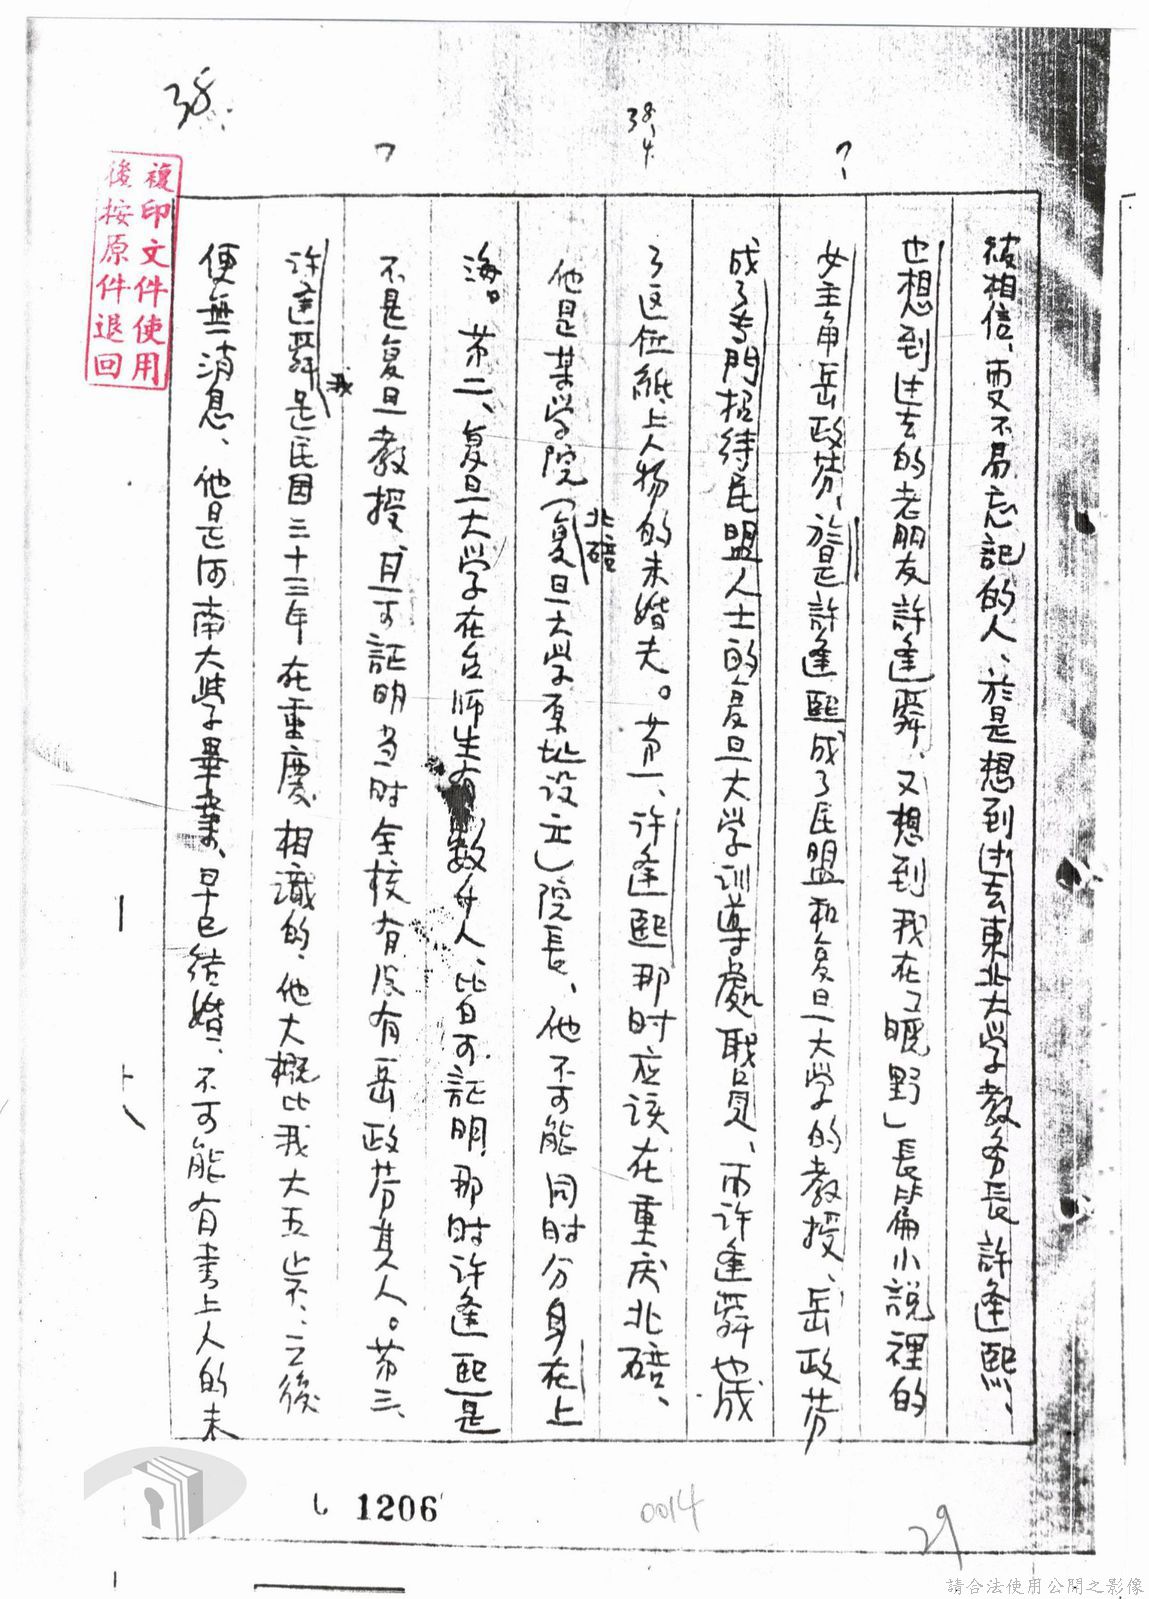 38
38.4
?
?
複印文件使用
後按原件退回
被相信、而又不易忘記的人、於是想到过去東北大学教务長許逢熙、
也想到过去的老朋友許逢舜、又想到我在「曠野」長篇小說裡的
女主角岳政芬、於是許逢熙成了民盟和复旦大学的教授、岳政芬
成了专門招待民盟人士的复旦大学训導處職員、而许逢舜也成
了这位紙上人物的未婚夫。苐一、许逢熙那时应该在重庆北碚、
他是某学院（北碚复旦大学原址设立）院長、他不可能同时分身在上
海。苐二、复旦大学在台师生有数千人、皆可証明那时许逢熙是
不是复旦教授、且可証明当时全校有没有岳政芬其人。苐三、
许逢舜是我民国三十三年在重慶相識的、他大概比我大五岁、之後
便無消息、他是河南大学畢業、早已結婚、不可能有書上人的未
1206
0014
29
請合法使用公開之影像